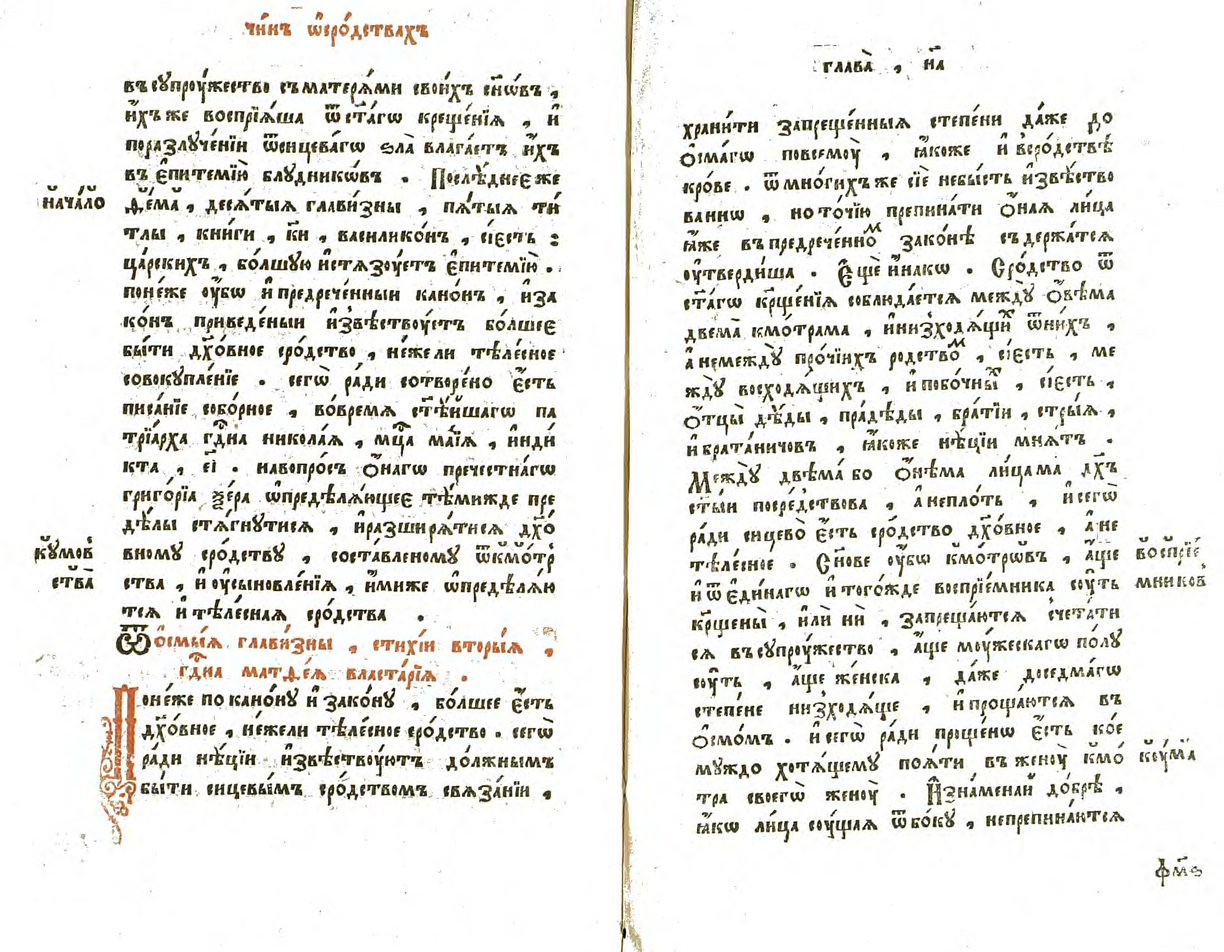 чи́нъ ѡ҆сро́дствахъ
въсупрꙋ́жество съматерѧ́ми свои́хъ сн҃ѡ́въ ,
и҆́хъже воспрїѧ́ша ѿст҃а́гѡ креще́нїѧ , и҆
поразлꙋче́нїи ѿсицева́гѡ ѕла̀ влага́етъ и҆́хъ
въ є҆питемі́ю блꙋдникѡ́въ . Послѣ́днеєже
нача́ло
ѳ҆е́ма , десѧ́тыѧ глави́зны , пѧ́тыѧ ти́
тлы , кни́ги , к҃и , василико́нъ , сїе́сть :
ца́рскихъ , бо́лшую и҆стѧзꙋ́етъ є҆питемі́ю .
поне́же ᲂу҆́бѡ и҆предрече́нныи кано́нъ , и҆за
ко́нъ приведе́ныи и҆звѣствꙋ́етъ бо́лшеє
бы́ти дх҃о́вное сро́дство , не́жели тѣле́сное
совокꙋпле́нїе . сегѡ̀ ра́ди сотворе́но є҆́сть
писа́нїе собо́рное , во́времѧ ст҃ѣ́ишагѡ па
трїа́рха гд҇и́на никола́ѧ , мц҇а ма́їѧ , и҆нди
кта , є҃і . навопро́съ ѻ҆́нагѡ пречестна́гѡ
григо́рїа ѯе́ра ѡ҆предѣлѧ́ющеє тѣ́мижде пре
дѣ́лы стѧ́гнꙋтисѧ , и҆разширѧ́тисѧ дх҃о́
кꙋмов
ства̀
вномꙋ сро́дствꙋ , соста́вленомꙋ ѿкмо́тр
ства , и҆ᲂу҆сыновле́нїѧ , и҆́миже ѡ҆предѣлѧ́ю
тсѧ и҆тѣле́снаѧ сро́дства .
Ѿѻсмы́ѧ глави́зны , стихі́и вторы́ѧ ,
гд҇и́на матѳе́ѧ власта́рїѧ .
Поне́же покано́нꙋ и҆зако́нꙋ , бо́лшее є҆́сть
дх҃о́вное , не́жели тѣле́сное сро́дство . сегѡ̀
ра́ди нѣ́цїи и҆звѣствꙋ́ютъ до́лжнымъ
бы́ти сицевы́мъ сро́дствомъ свѧ́зани ,
глава̀ , н҃а
храни́ти запреще́нныѧ степе́ни да́же до
ѻ҆сма́гѡ повсемꙋ̀ , ꙗ҆́коже и҆ всро́дствѣ
кро́ве . ѿмно́гихъже сїе́ небы́сть и҆звѣ́ство
ваннѡ , ното́чїю препина́ти ѻ҆́наѧ ли́ца
ꙗ҆́же въпредрече́нном зако́нѣ съдержа́тсѧ
ᲂу҆тверди́ша . Є҆ще́ и҆на́кѡ . Сро́дство ѿ
ст҃а́гѡ кр҃ще́нїѧ соблюда́етсѧ междꙋ̀ ѻ҆бѣ́ма
двема̀ кмо́трама , и҆низходѧ́щих ѿни́хъ ,
а҆ немеждꙋ̀ про́чїихъ родством , сїе́сть , ме
ждꙋ̀ восходѧ́щихъ , и҆побо́чных , сїе́сть ,
ѻ҆тцы̀ дѣ́ды , пра́дѣды , бра́тїи , стры́ѧ ,
и҆брата́ничовъ , ꙗ҆́коже нѣ́цїи мнѧ́тъ .
Междꙋ̀ двѣма́ бо ѻ҆нѣ́ма лица́ма дх҃ъ
ст҃ы́и посре́дствова , а҆непло́ть , и҆сегѡ̀
ра́ди сицево̀ є҆́сть сро́дство дх҃о́вное , а҆не
тѣле́сное . Сн҃ове ᲂу҆́бѡ кмо́трѡвъ , а҆́ще
воспрїе́
мников
и҆ѿє҆ди́нагѡ и҆того́жде воспрїе́мника сꙋ́ть
кр҃ще́ны , и҆лѝ нѝ , запреща́ютсѧ счета́ти
сѧ въсꙋпрꙋ́жество , а҆́ще мꙋ́жескагѡ по́лꙋ
сꙋ́ть , а҆́ще же́нска , да́же доседма́гѡ
степе́не низходѧ́ще , и҆проща́ютсѧ въ
ѻ҆смо́мъ . и҆сегѡ̀ ра́ди проще́нѡ є҆́сть ко́е
мꙋждо хотѧ́щемꙋ поѧ́ти въженꙋ̀ кмо́
кꙋма̀
тра своегѡ̀ женꙋ̀ . И҆зна́менаи до́брѣ ,
ꙗ҆́кѡ ли́ца сꙋ́щаѧ ѿбо́кꙋ , непрепина́ютсѧ
фм҃ѕ